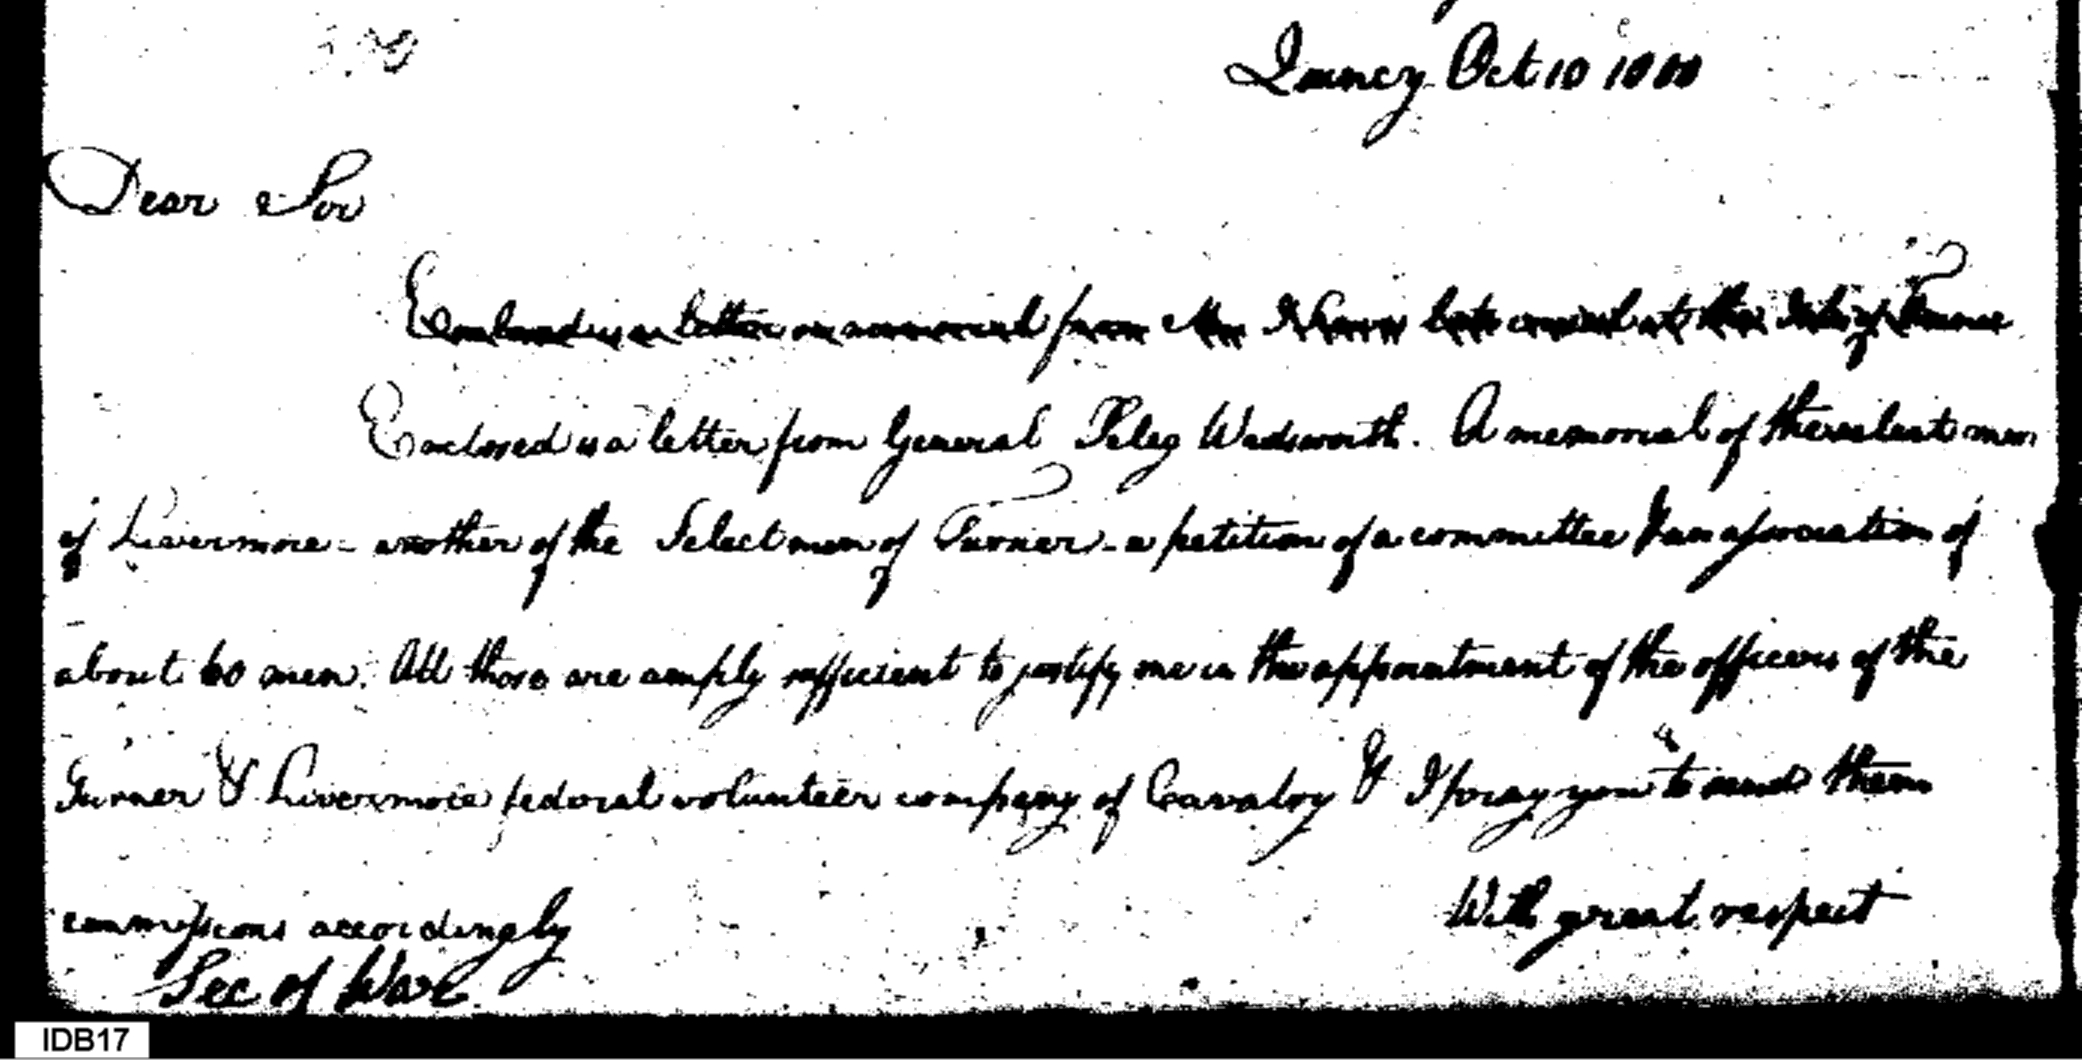 Quincy Oct 10 1800
Dear Sir
Enclosed is a letter or memorial from Mr late consul at the Isle of France
Enclosed is a letter from General Peleg Wadsworth. A memorial of the select men
of Livermore - another of the Select men of Turner - a petition of a committee & an association of
about 60 men. All those are amply sufficient to justify me in the appointment of the officers of the
Turner & Livermore federal volunteer company of Cavalry & I pray you to send them
commissions accordingly
With great respect
Sec of War
IDB17